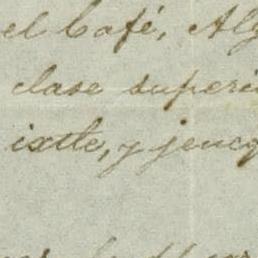 el Café, Alg
clase superi
ixtle, y jeneq